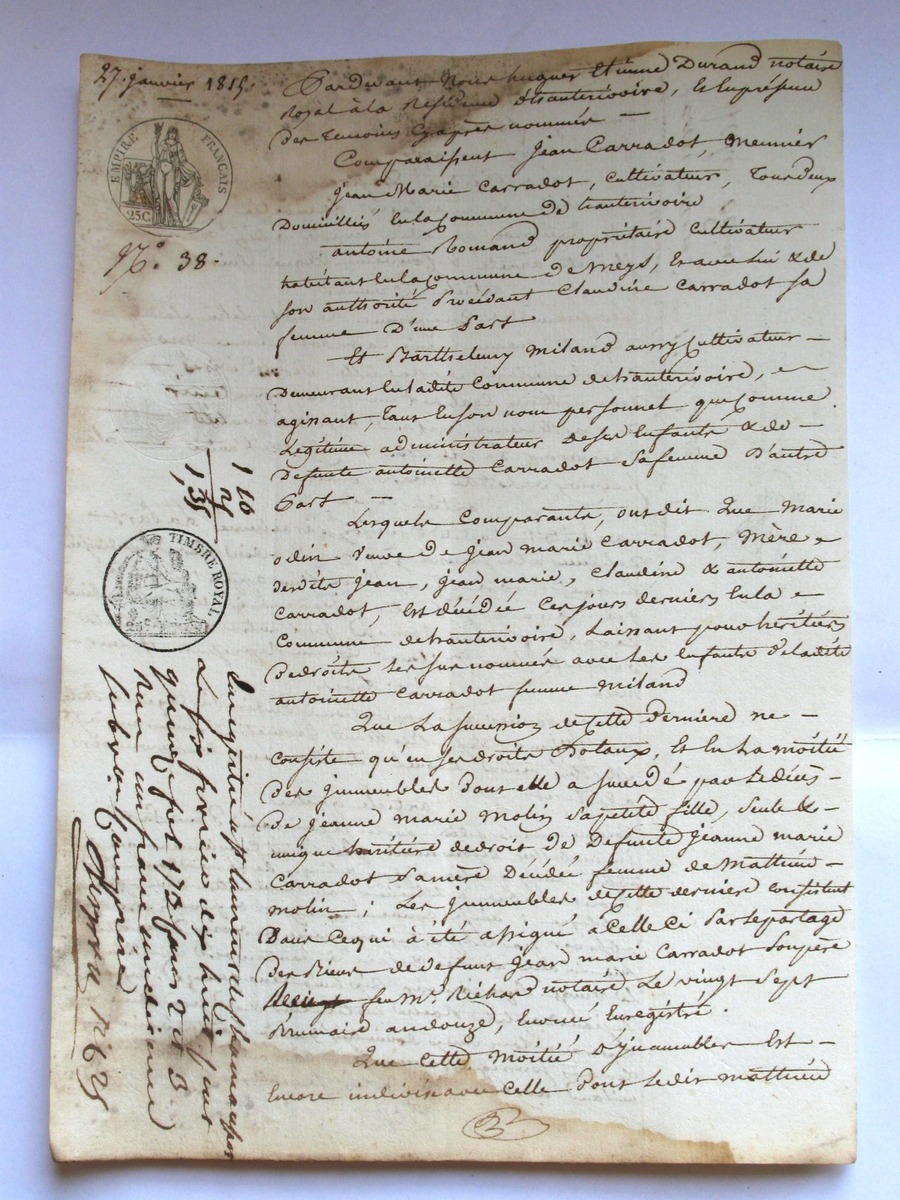 27. janvier 1815.
EMPIRE FRANÇAIS
25 C.
N.° 38.
Pardevant Nous hugues Etienne Durand notaire
Royal à la Résidence d'hauterivoire, et En présence
Des temoins Cyaprès nommés —
Comparaissent Jean Carradot, meunier
Jean Marie Carradot, Cultivateur, Tous deux
Domiciliés En la Commune De hauterivoire
antoine Romand propriétaire Cultivateur
habitant En la Commune De meys, et avec lui & de
son authorité Procédant Claudine Carradot sa
femme D'une Part
Et Barthelemy Miland aussy Cultivateur —
Demeurant En ladite Commune de hauterivoire,
agissant, Tant En son nom personnel que Comme
Légitime administrateur de ses Enfants & de —
Defunte antoinette Carradot sa femme D'autre
Part —
Lesquels Comparants, ont dit Que Marie
odin Veuve De Jean marie Carradot, Mère
desdits Jean, Jean marie, Claudine & antoinette
Carradot, Est décédée Ces jours derniers En la
Commune de hauterivoire, Laissant pour héritiers
De droits les sus nommés avec les Enfants De ladite
antoinette Carradot femme Miland
Que La succession de Cette Dernière ne —
Consiste qu'en ses droits Dotaux, Et En La moitié
Des immeubles Dont elle a succédé par le décès
De Jeanne marie Molin sa petite fille, seule & —
unique héritière de droit de Defunte Jeanne marie
Carradot sa mère Décédée femme de Mathieu —
molin; Les immeubles de Cette dernière Consistent
Dans Ce qui a été assigné a Celle Ci Par le partage
Des Biens de defunt Jean marie Carradot son père
feu M.e Richard notaire Le vingt Sept
Brumaire an douze, Enoncé Enregistré.
Que Cette Moitié D'immeubles Est —
Encore indivise avec Celle dont ledit mathieu
1 10
25
1,35
TIMBRE ROYAL
25 C.
Enregistré à St Laurent de Chamousset
Le six février dix huit cent
quinze fol 172 Cases 2 et 3
reçu un franc un décime
subvention Comprise